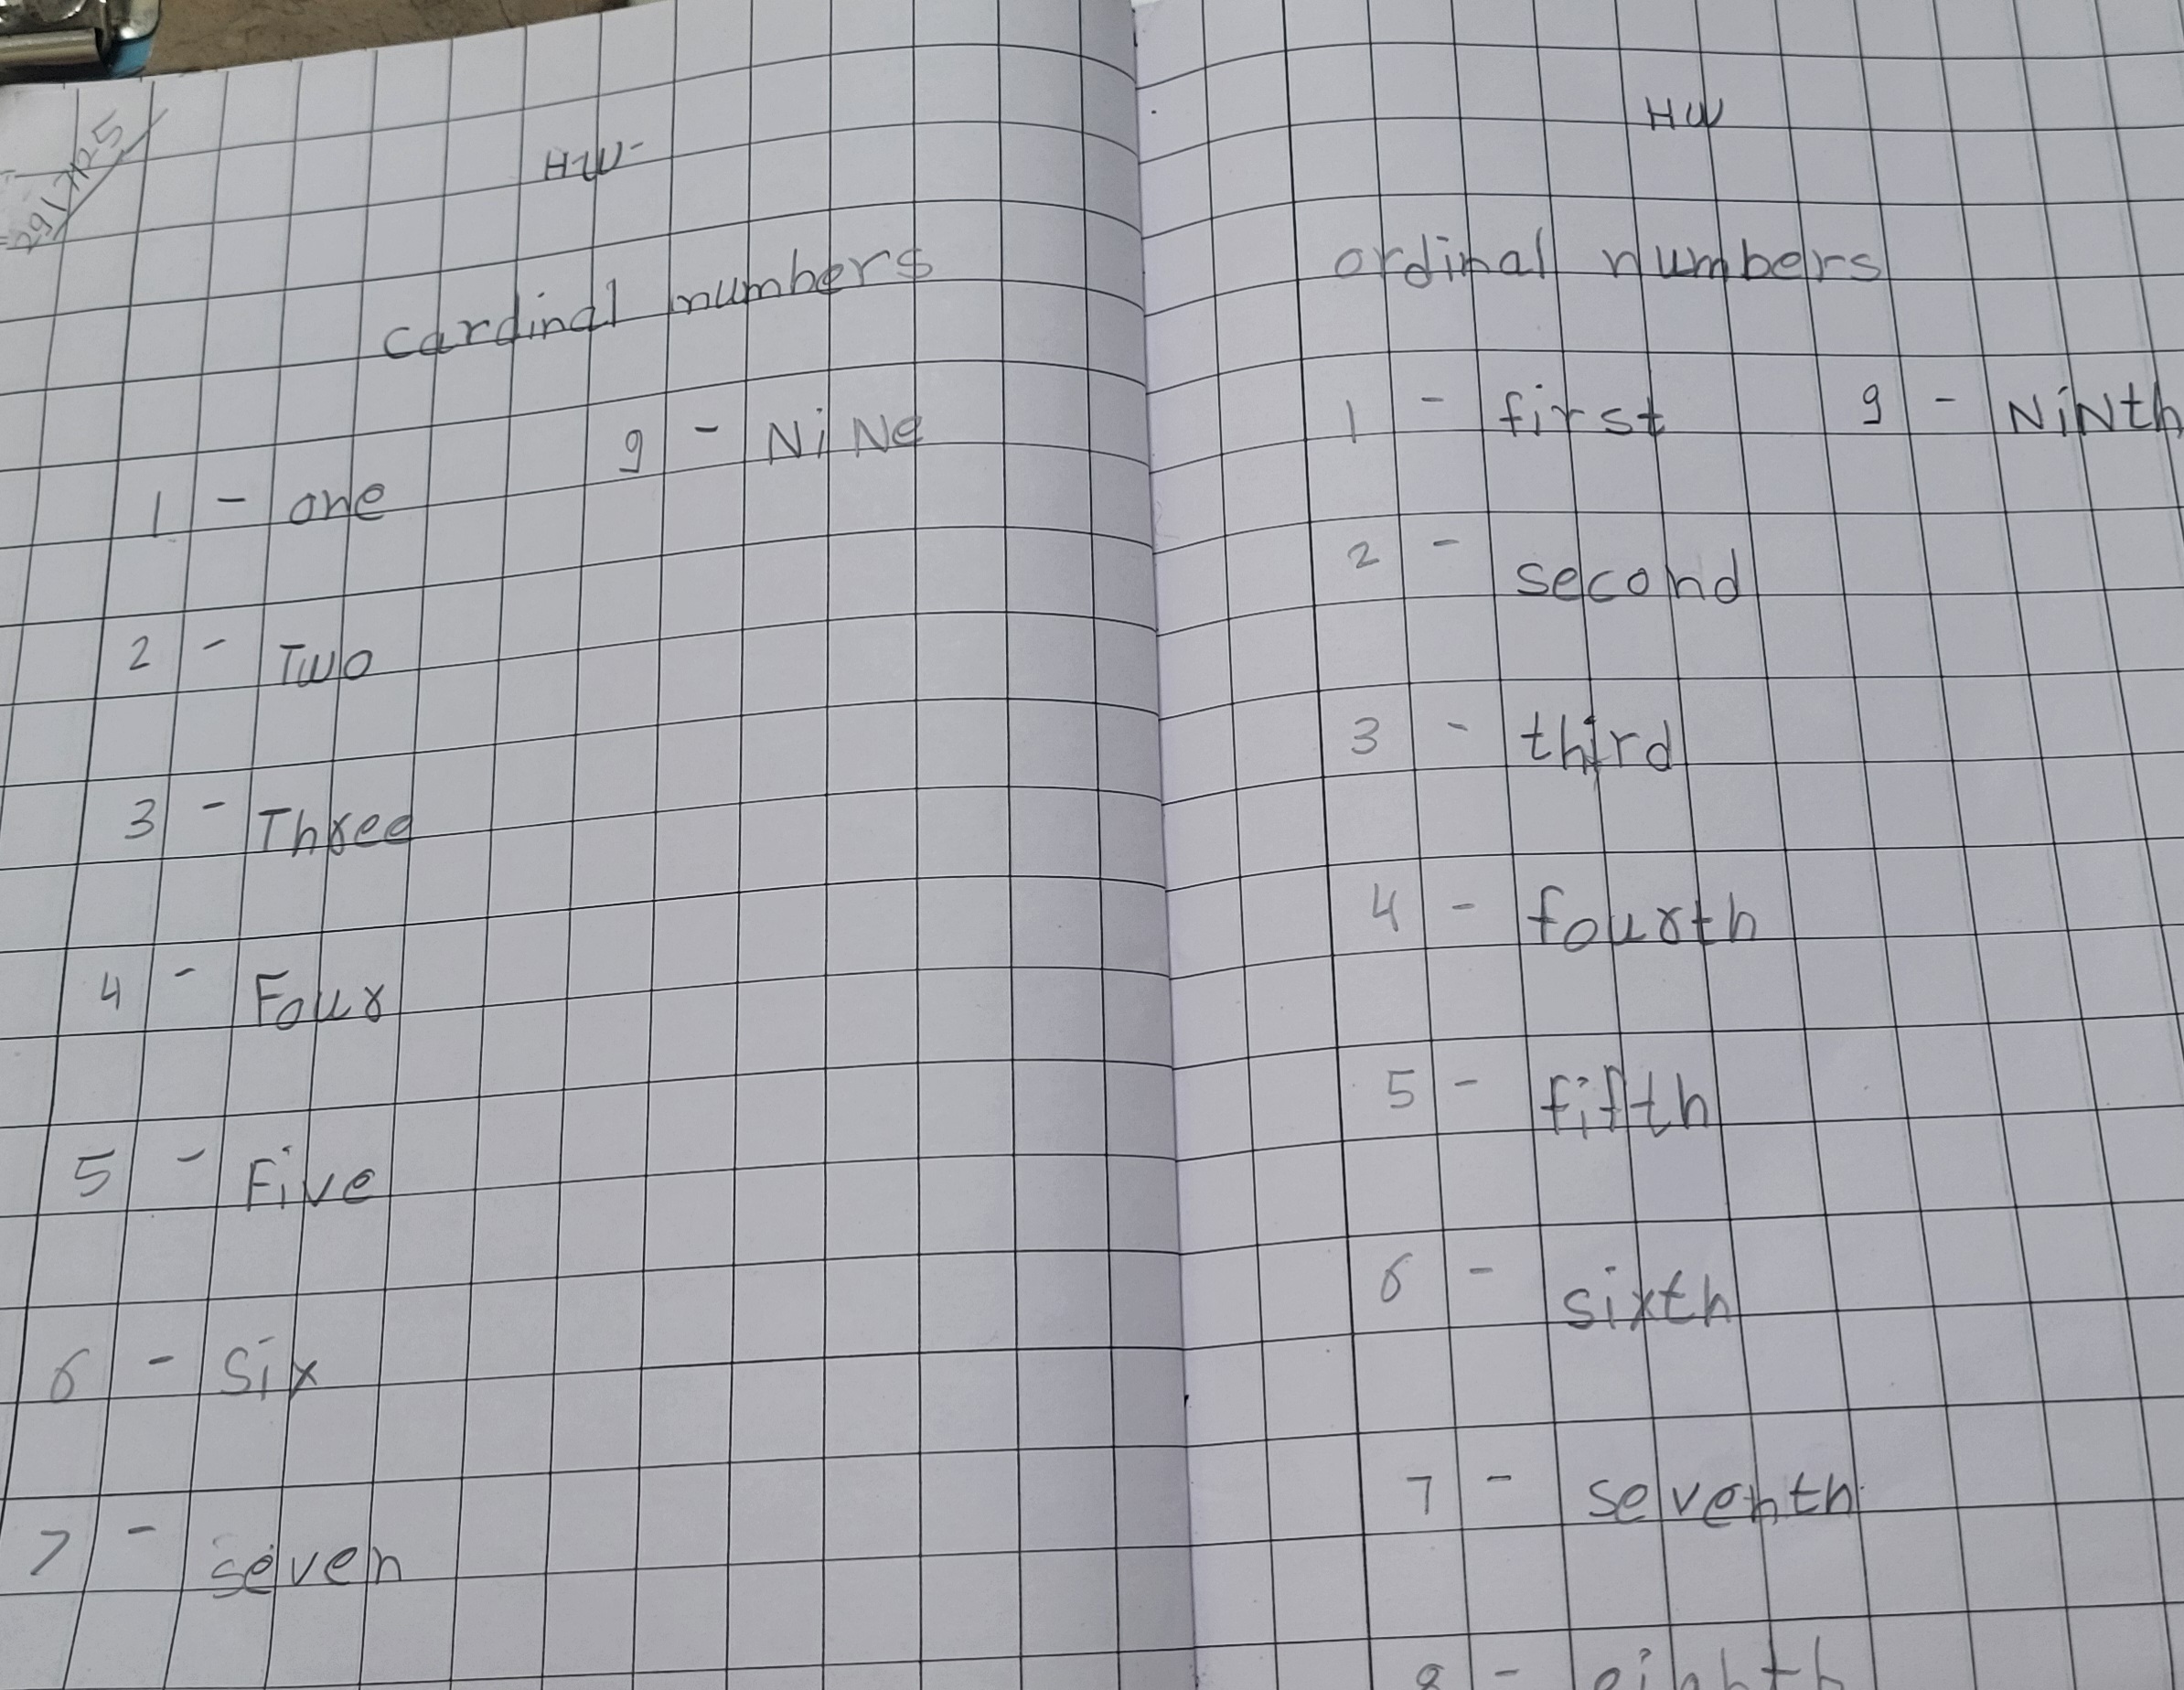 29/7/25
HW
cardinal numbers
1 - one
2 - Two
3 - Three
4 - Four
5 - Five
6 - Six
7 - seven
9 - NiNe
HW
ordinal numbers
1 - first
2 - second
3 - third
4 - fourth
5 - fifth
6 - sixth
7 - seventh
8 - eighth
9 - NiNth